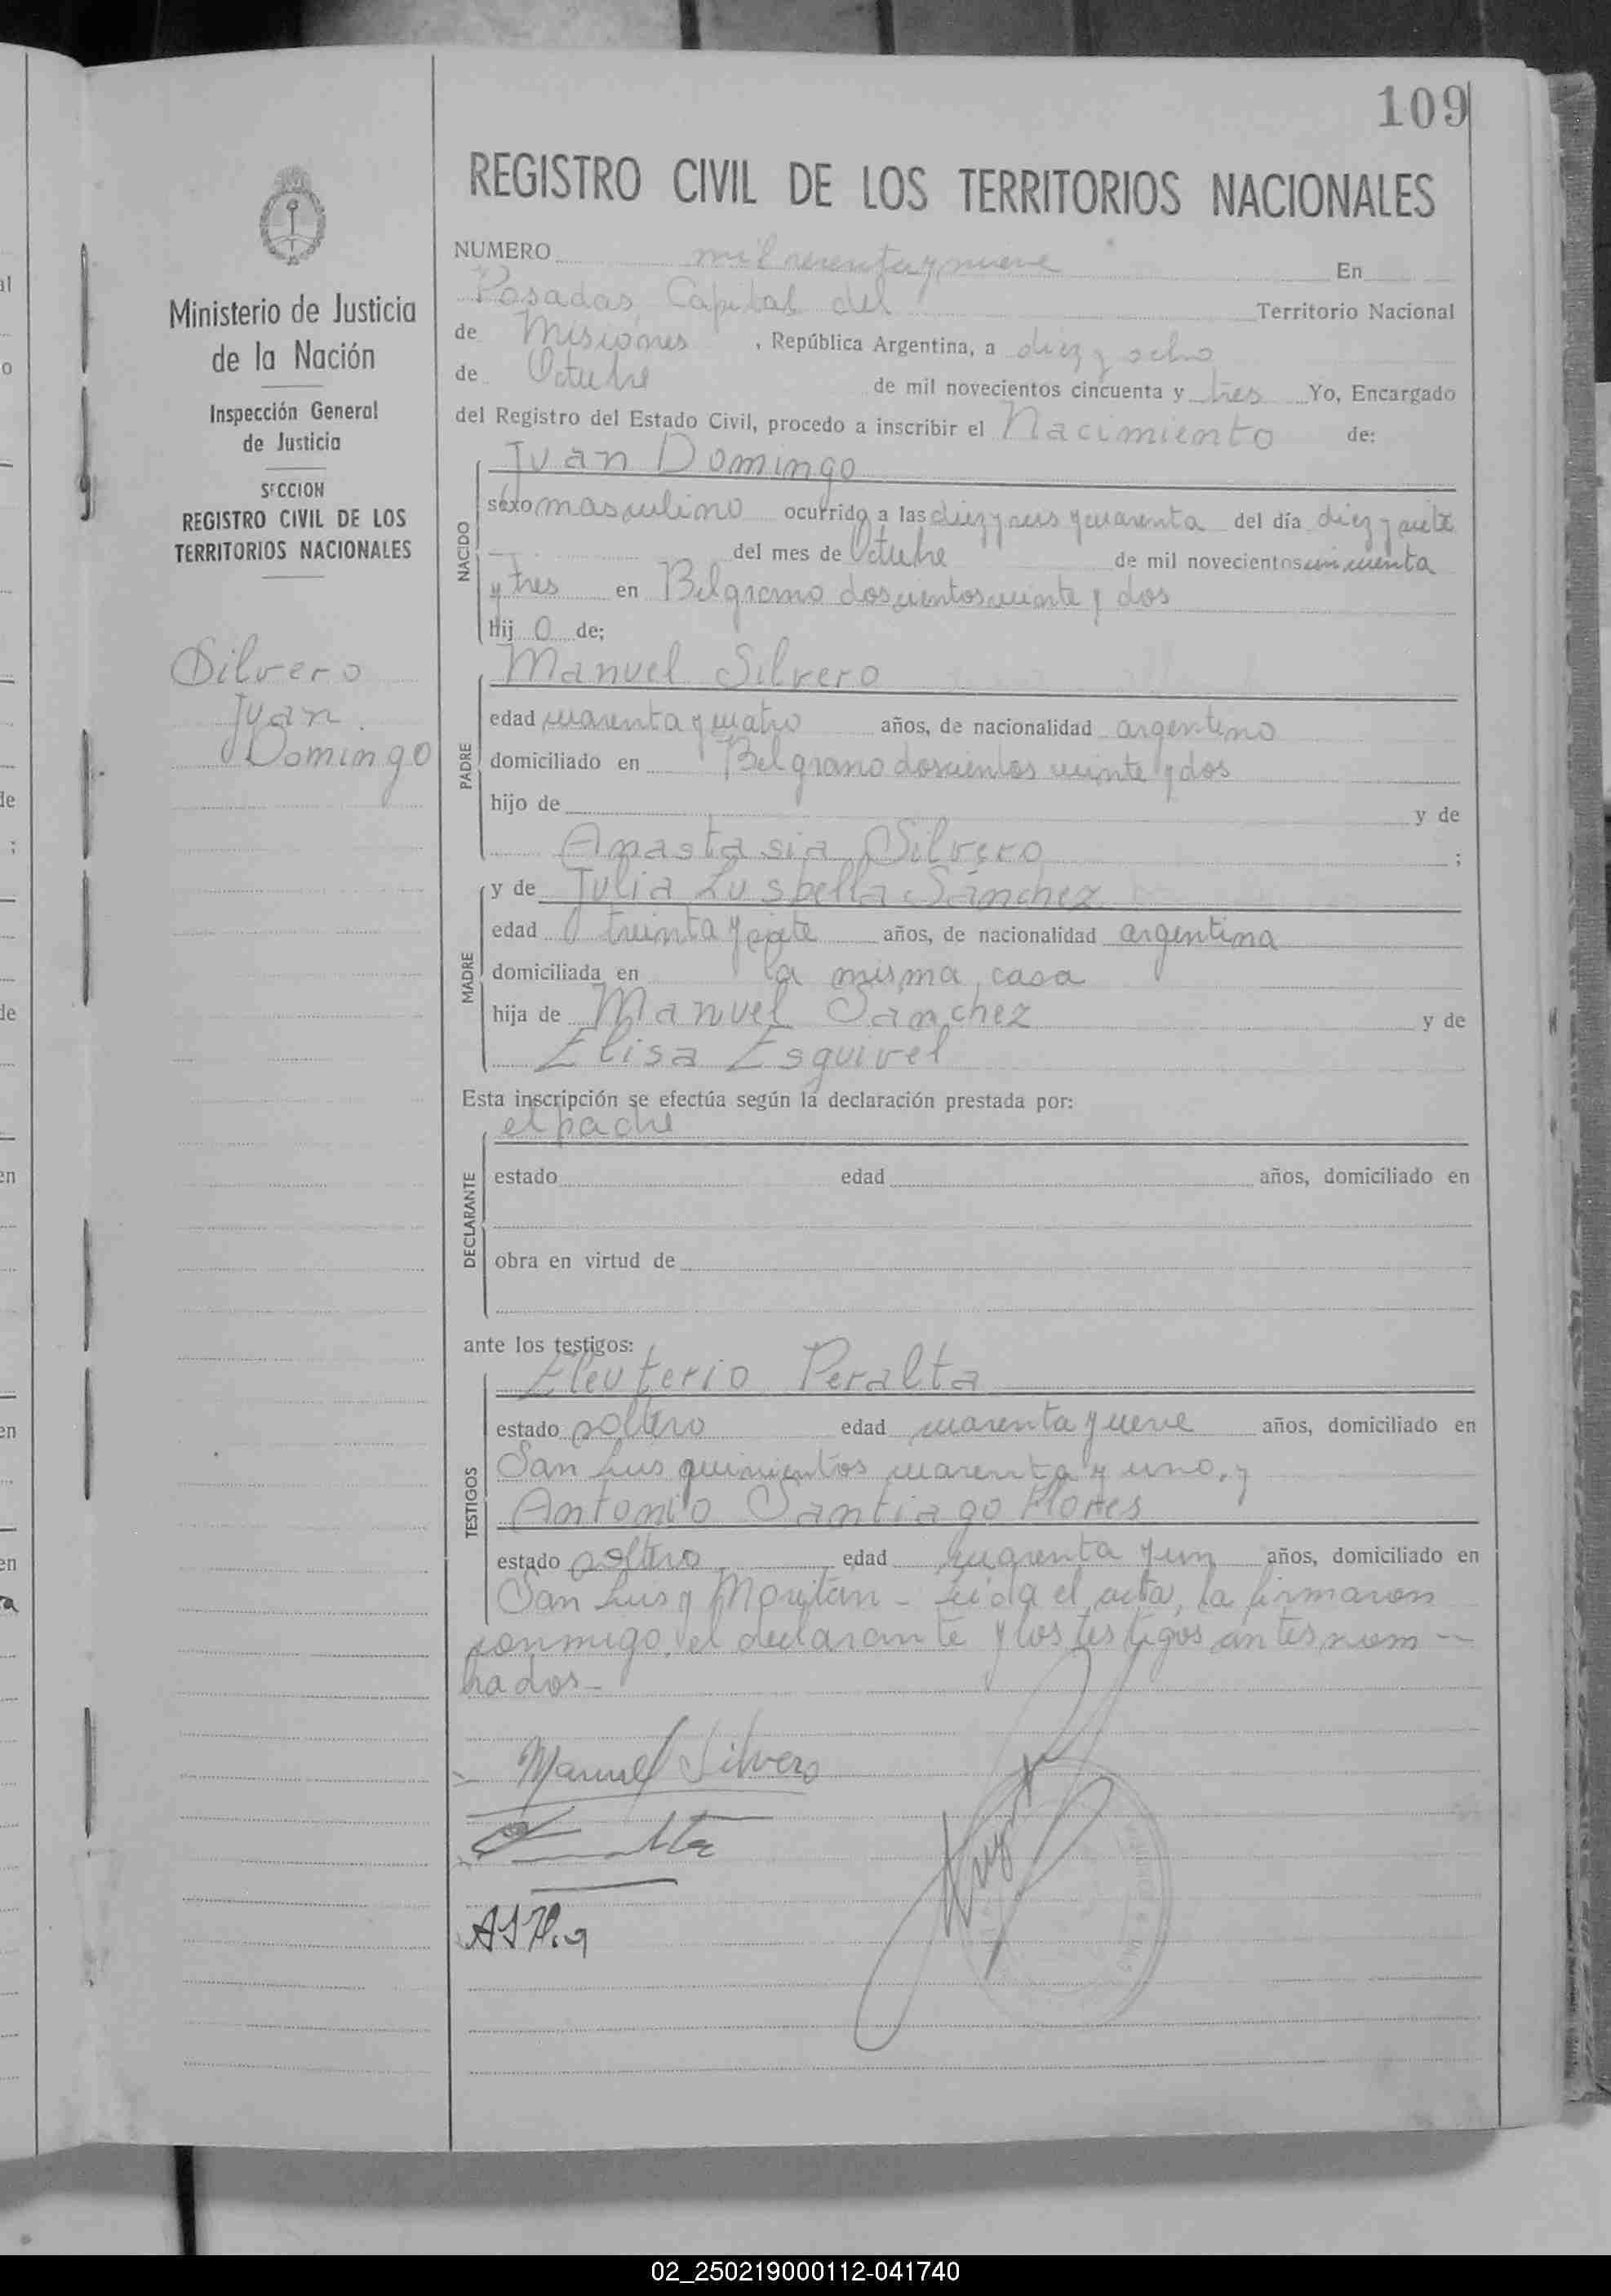 109
REGISTRO CIVIL DE LOS TERRITORIOS NACIONALES
NUMERO mil sesenta y nueve En
Posadas, Capital del Territorio Nacional
de Misiones, República Argentina, a diez y ocho
de Octubre de mil novecientos cincuenta y tres Yo, Encargado
del Registro del Estado Civil, procedo a inscribir el Nacimiento de:
NACIDO
Juan Domingo
sexo masculino ocurrido a las diez y seis y cuarenta del día diez y siete
del mes de Octubre de mil novecientos cincuenta
y tres en Belgrano doscientos veinte y dos
Hij o de;
PADRE
Manuel Silvero
edad cuarenta y cuatro años, de nacionalidad argentino
domiciliado en Belgrano doscientos veinte y dos
hijo de y de
Anastasia Silvero ;
MADRE
y de Julia Lusbella Sánchez
edad treinta y siete años, de nacionalidad argentina
domiciliada en la misma casa
hija de Manuel Sanchez y de
Elisa Esquivel
Esta inscripción se efectúa según la declaración prestada por:
DECLARANTE
el padre
estado edad años, domiciliado en
obra en virtud de
ante los testigos:
TESTIGOS
Eleuterio Peralta
estado soltero edad cuarenta y nueve años, domiciliado en
San Luis quinientos cuarenta y uno, y
Antonio Santiago Flores
estado soltero edad cuarenta y un años, domiciliado en
San Luis y Moritán - Leída el acta, la firmaron
conmigo, el declarante y los testigos antes nom-
brados -
Manuel Silvero
Ministerio de Justicia
de la Nación
Inspección General
de Justicia
SECCION
REGISTRO CIVIL DE LOS
TERRITORIOS NACIONALES
Silvero
Juan
Domingo
02_250219000112-041740